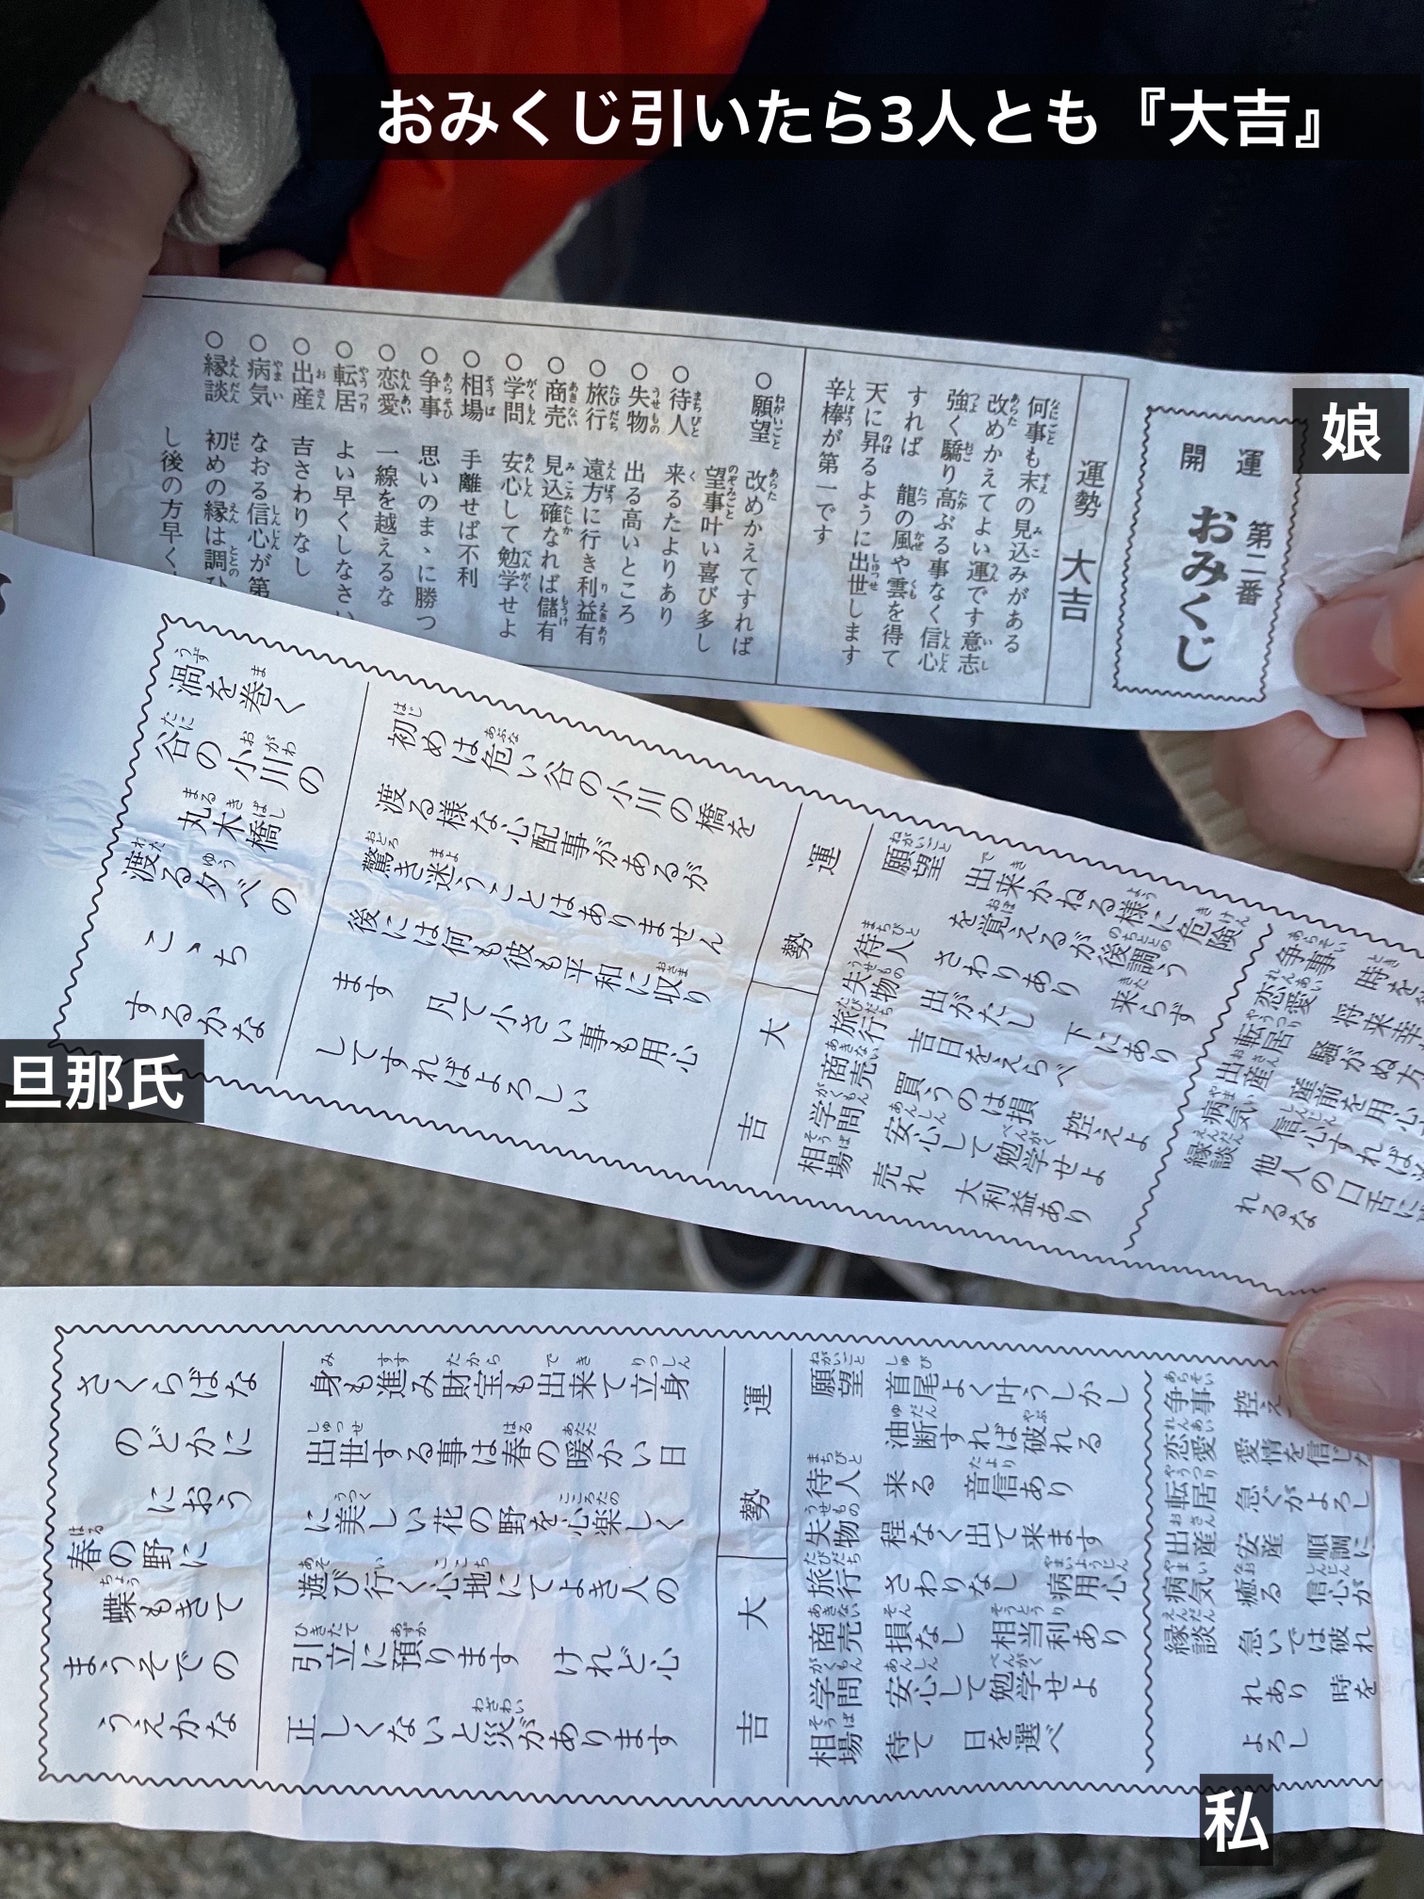 おみくじ引いたら3人とも『大吉』
娘
開運
第二番
おみくじ
運勢 大吉
何事も末の見込みがある
改めかえてよい運です意志
強く驕り高ぶる事なく信心
すれば 龍の風や雲を得て
天に昇るように出世します
辛棒が第一です
○願望 改めかえてすれば
望事叶い喜び多し
○待人 来るたよりあり
○失物 出る高いところ
○旅行 遠方に行き利益有
○商売 見込確なれば儲有
○学問 安心して勉学せよ
○相場 手離せば不利
○争事 思いのまゝに勝つ
○恋愛 一線を越えるな
○転居 よい早くしなさい
○出産 吉さわりなし
○病気 なおる信心が第
○縁談 初めの縁は調
し後の方早く
旦那氏
渦を巻く
谷の小川の
丸木橋
渡る夕べの
こゝち
するかな
初めは危い谷の小川の橋を
渡る様な心配事があるが
驚き迷うことはありません
後には何も彼も平和に収り
ます 凡て小さい事も用心
してすればよろしい
運勢 大吉
願望 出来かねる様に危険
を覚えるが後調う
待人 さわりあり 来らず
失物 出がたし 下にあり
旅行 吉日をえらべ
商売 買うのは損 控えよ
学問 安心して勉学せよ
相場 売れ 大利益あり
争事 時を
恋愛 将来幸
転居 騒がぬ方
出産 産前を用心
病気 信心すれば
縁談 他人の口舌に
れるな
私
さくらばな
のどかに
におう
春の野に
蝶もきて
まうそでの
うえかな
身も進み財宝も出来て立身
出世する事は春の暖かい日
に美しい花の野を心楽しく
遊び行く心地にてよき人の
引立に預ります けれど心
正しくないと災があります
運勢 大吉
願望 首尾よく叶うしかし
油断すれば破れる
待人 来る 音信あり
失物 程なく出て来ます
旅行 さわりなし 病用心
商売 損なし 相当利あり
学問 安心して勉学せよ
相場 待て 日を選べ
争事 控え
恋愛 愛情を信じ
転居 急ぐがよろし
出産 安産 順調に
病気 癒る 信心が
縁談 急いでは破れ
れあり 時を
よろし